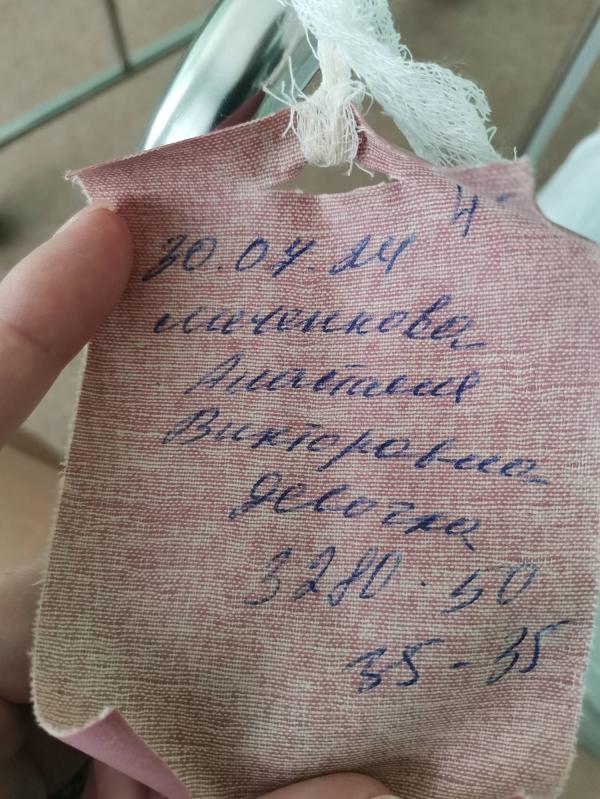 4-
30.04.14
Анастасия
Викторовна
девочка
3280. 50
35-35